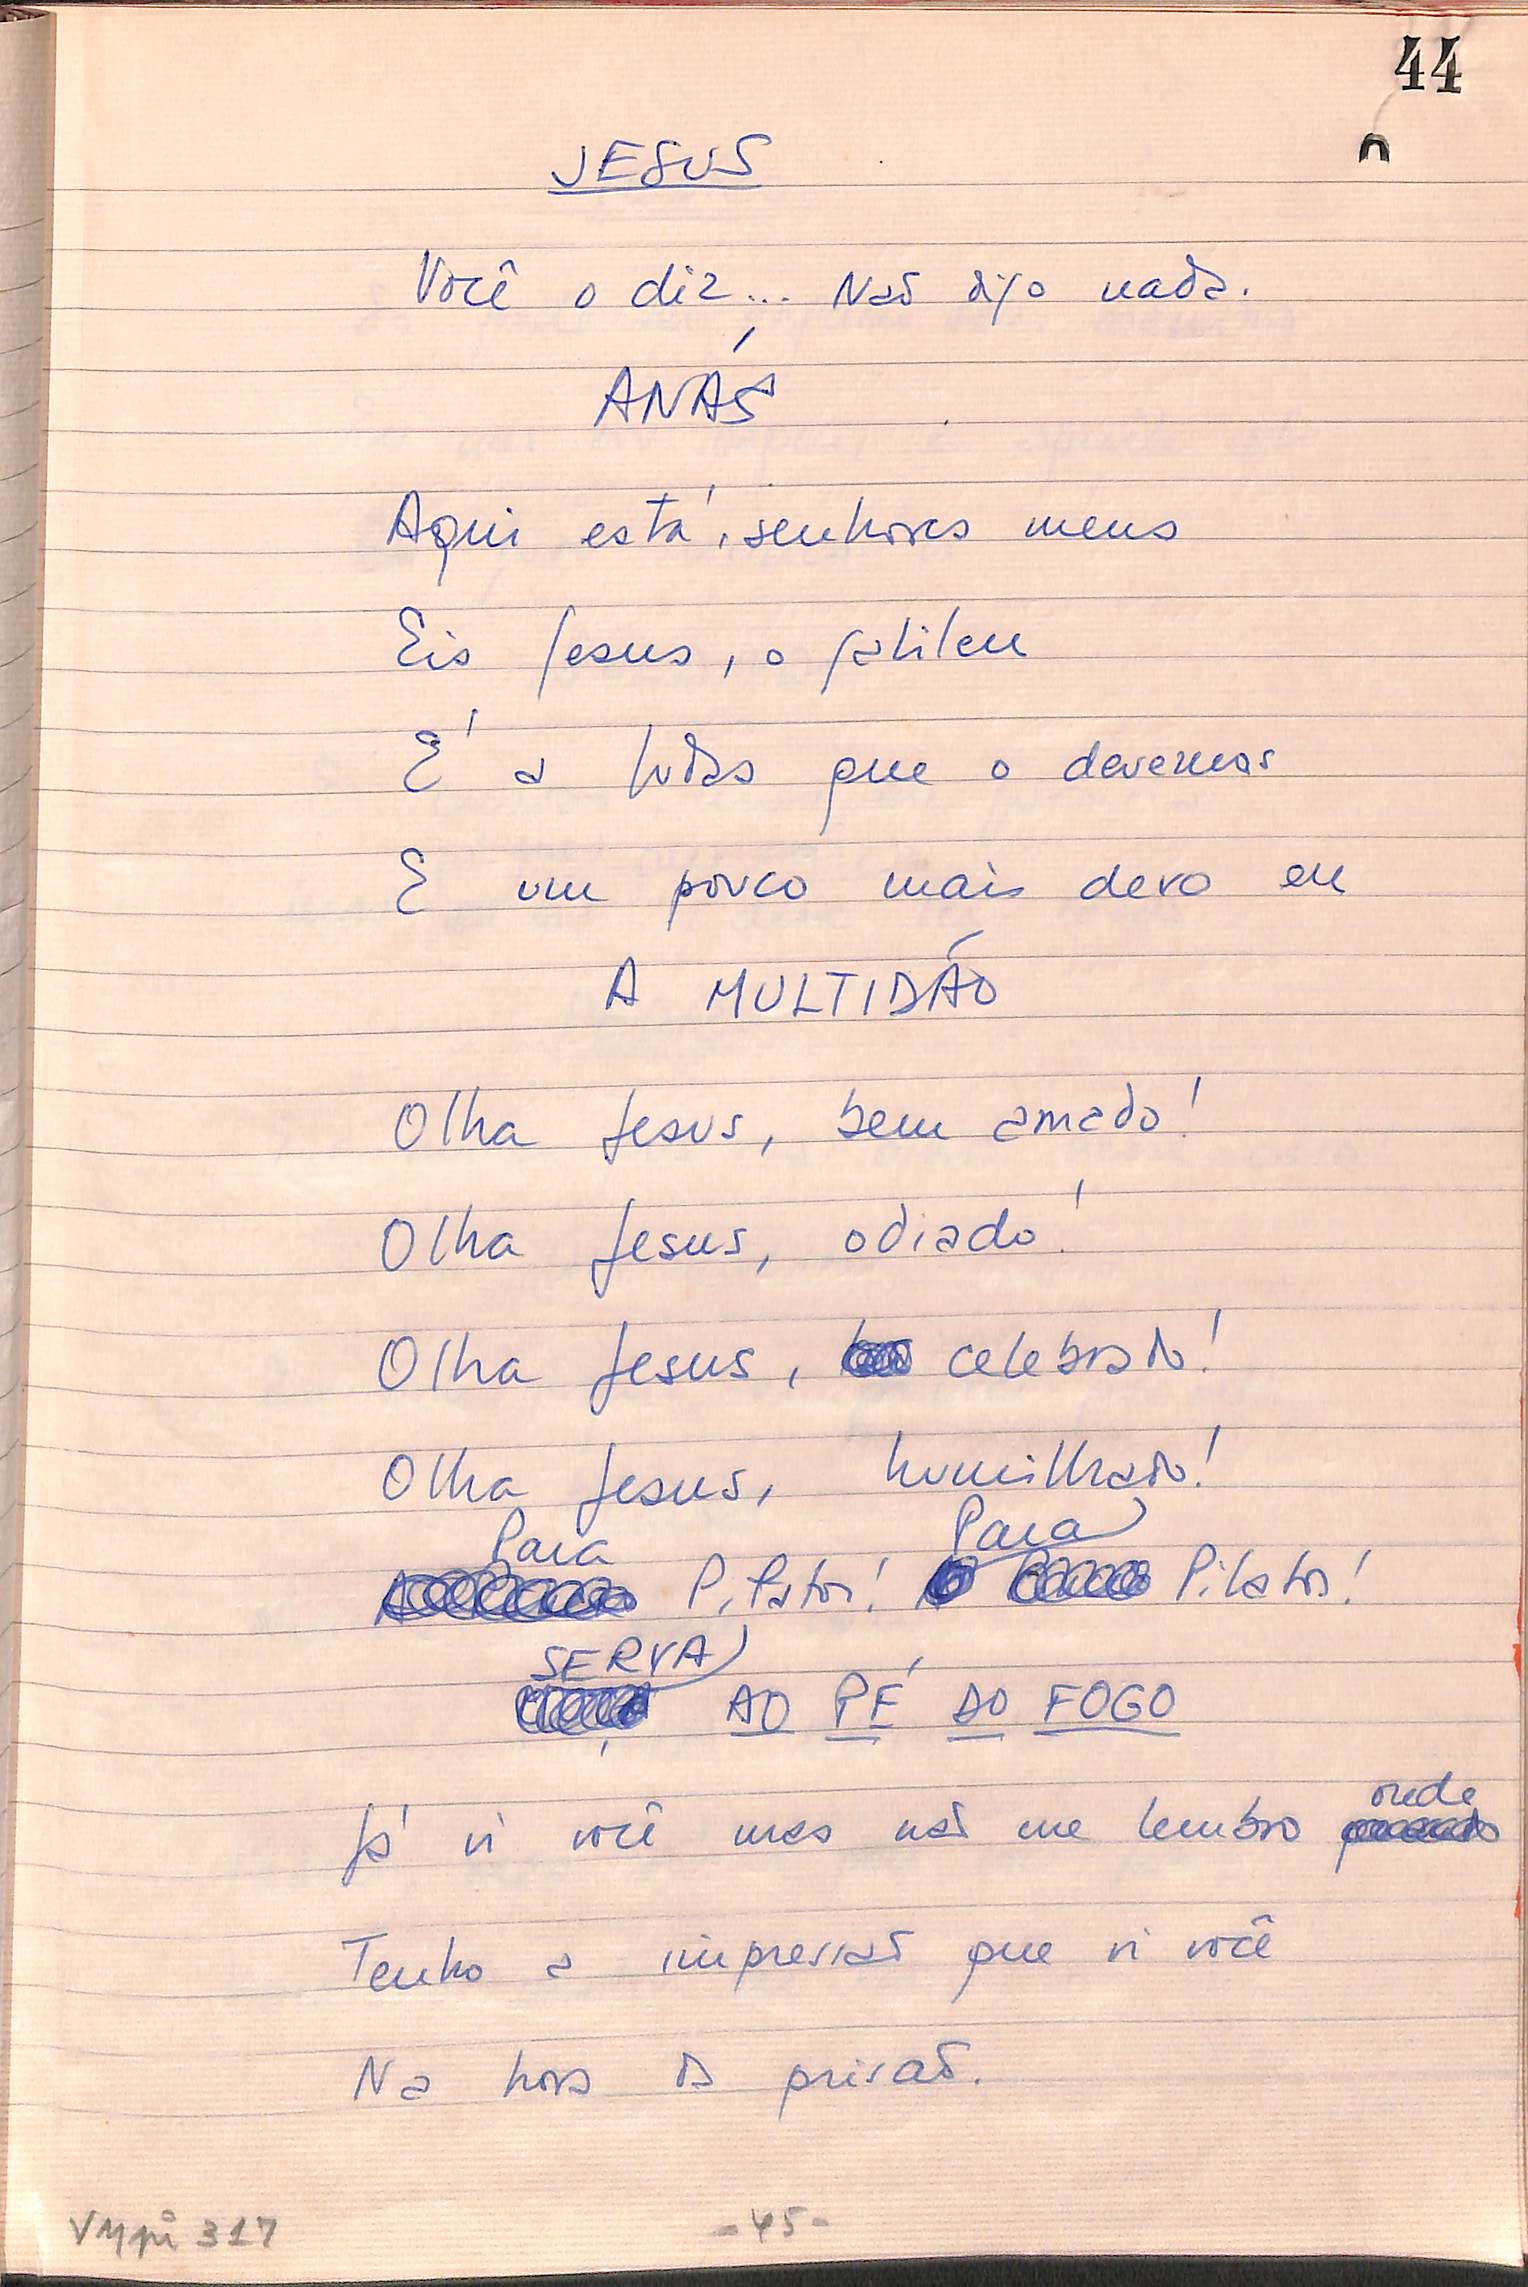 44
JESUS
Você o diz... Não digo nada.
ANÁS
Aqui está, senhores meus
Eis Jesus, o galileu
É a Judas que o devemos
E um pouco mais devo eu
A MULTIDÃO
Olha Jesus, bem amado!
Olha Jesus, odiado!
Olha Jesus, celebrado!
Olha Jesus, humilhado!
Para Pilatos! Para Pilatos!
SERVA AO PÉ DO FOGO
Já vi você mas não me lembro onde
Tenho a impressão que vi você
Na hora da prisão.
317
- 45 -